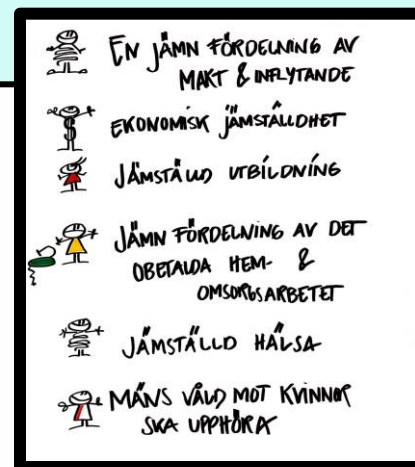 EN JÄMN FÖRDELNING AV
MAKT & INFLYTANDE
EKONOMISK JÄMSTÄLLDHET
JÄMSTÄLLD UTBILDNING
JÄMN FÖRDELNING AV DET
OBETALDA HEM- &
OMSORGSARBETET
JÄMSTÄLLD HÄLSA
MÄNS VÅLD MOT KVINNOR
SKA UPPHÖRA